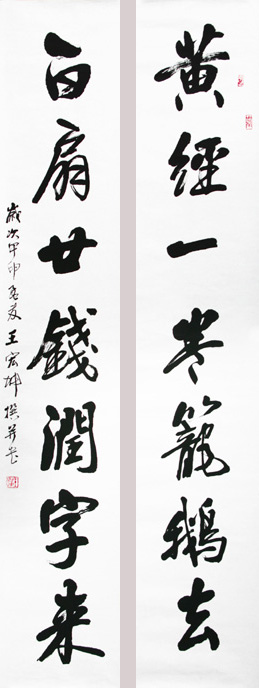 黄經一卷籠鵝去
百扇廿錢潤字来
歲次甲申 王宏坤撰并書